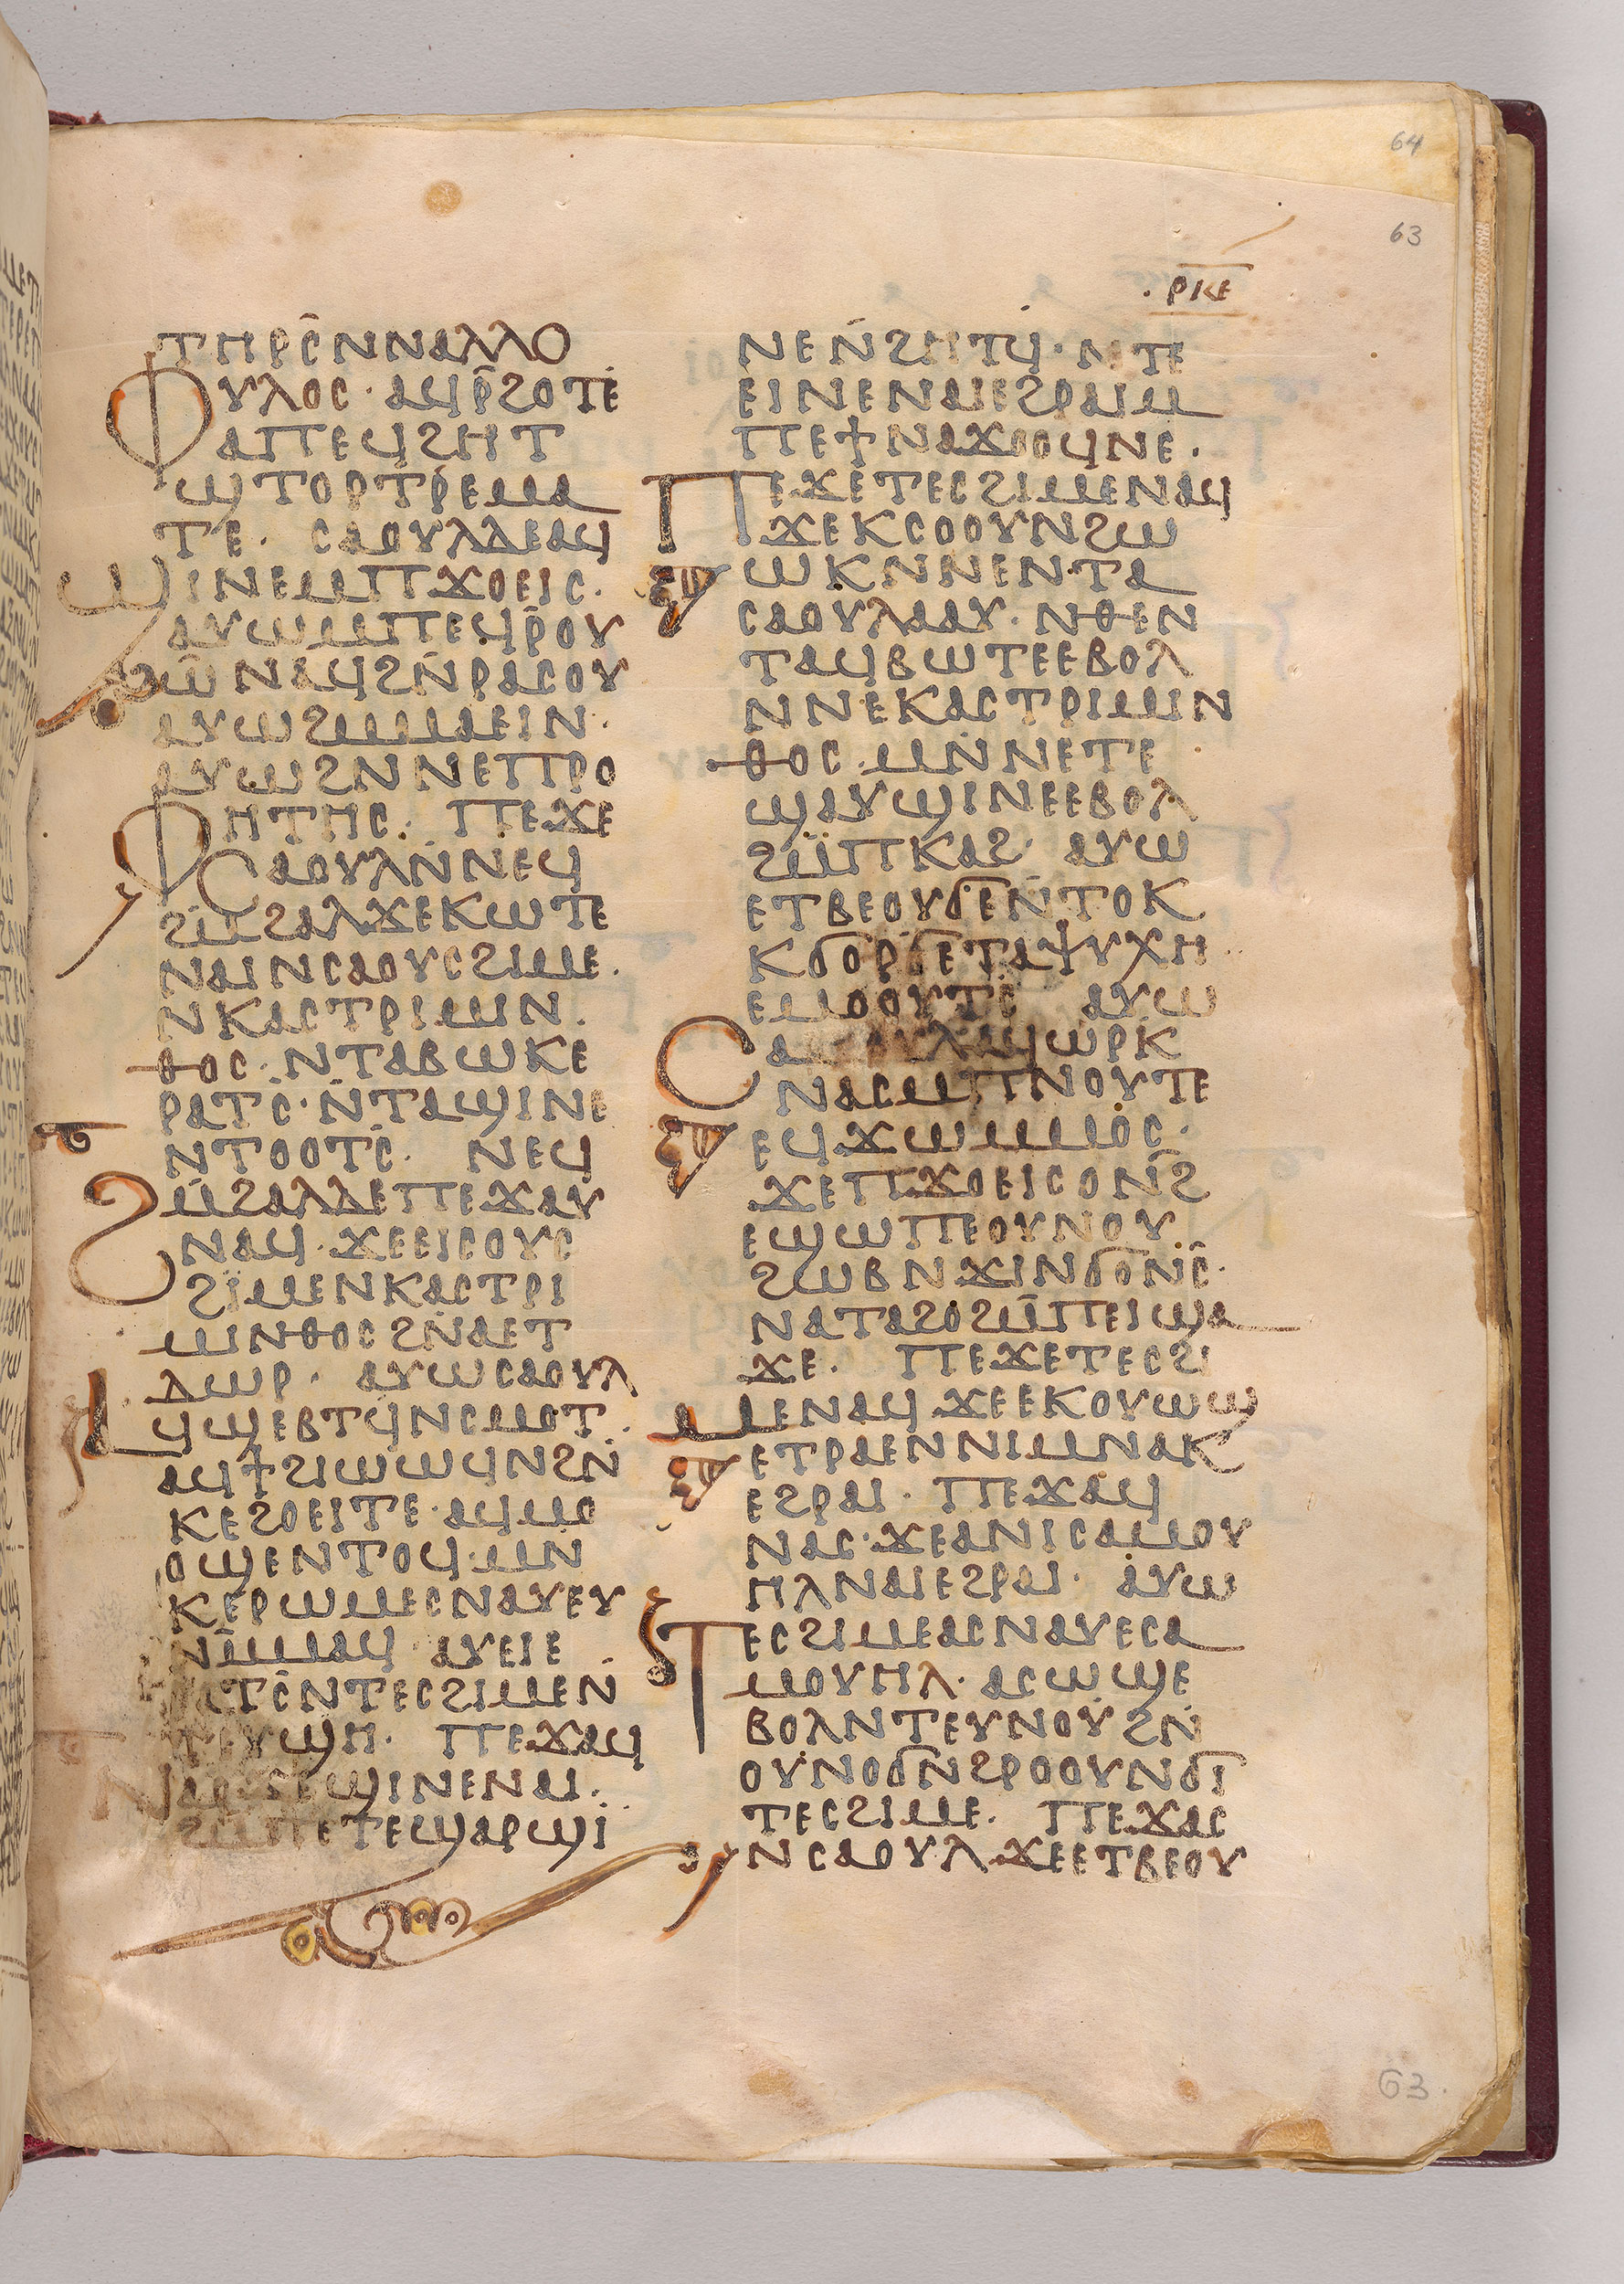 64
63
· ⲣⲕⲉ
ⲧⲏⲣⲥ̄ⲛⲛⲁⲗⲗⲟ
ⲫⲩⲗⲟⲥ · ⲁϥⲣ̄ϩⲟⲧⲉ
ⲁⲡⲉϥϩⲏⲧ
ϣⲧⲟⲣⲧⲣ̄ⲉⲙⲁ
ⲧⲉ · ⲥⲁⲟⲩⲗⲇⲉⲁϥ
ϣⲓⲛⲉⲙⲡϫⲟⲉⲓⲥ ·
ⲁⲩⲱⲙⲡⲉϥⲣ̄ⲟⲩ
ⲱ̄ⲛⲁϥϩⲛ̄ⲣⲁⲥⲟⲩ
ⲁⲩⲱϩⲙⲙⲁⲉⲓⲛ ·
ⲁⲩⲱϩⲛⲛⲉⲡⲣⲟ
ⲫⲏⲧⲏⲥ · ⲡⲉϫⲉ
ⲥⲁⲟⲩⲗⲛ̄ⲛⲉϥ
ϩⲙ̄ϩⲁⲗϫⲉⲕⲱⲧⲉ
ⲛⲁⲓⲛⲥⲁⲟⲩⲥϩⲓⲙⲉ ·
ⲛⲕⲁⲥⲧⲣⲓⲙⲓⲛ ·
ⲑⲟⲥ · ⲛⲧⲁⲃⲱⲕⲉ
ⲣⲁⲧⲥ̄ · ⲛ̄ⲧⲁϣⲓⲛⲉ
ⲛⲧⲟⲟⲧⲥ̄ · ⲛⲉϥ
ϩⲙ̄ϩⲁⲗⲇⲉⲡⲉϫⲁⲩ
ⲛⲁϥ · ϫⲉⲉⲓⲥⲟⲩⲥ
ϩⲓ̈ⲙⲉⲛⲕⲁⲥⲧⲣⲓ
ⲙⲓⲛⲑⲟⲥϩⲛ̄ⲁⲉⲧ
ⲇⲱⲣ · ⲁⲩⲱⲥⲁⲟⲩⲗ
ⲁϥϣⲉⲃⲧϥⲛⲥⲙⲟⲧ ·
ⲁϥϯϩⲓⲱⲱϥⲛϩⲛ̄
ⲕⲉϩⲟⲉⲓⲧⲉ · ⲁϥⲙⲟ
ⲟϣⲉⲛⲧⲟϥ · ⲙⲛ
ⲕⲉⲣⲱⲙⲉⲥⲛⲁⲩⲉⲩ
ⲛⲙ̄ⲙⲁϥ ⲁⲩⲉⲓⲉ
ⲣⲁⲧⲥ̄ⲛⲧⲉⲥϩⲓⲙⲉⲛ̄
ⲧⲉⲩϣⲏ · ⲡⲉϫⲁϥ
ⲛⲁⲥ ϫⲉϣⲓⲛⲉⲛⲁⲓ ·
ϩⲙⲡⲉⲧⲉϣⲁⲣϣⲓ
ⲛⲉⲛ̄ϩⲏⲧϥ · ⲛⲧⲉ
ⲉⲓⲛⲉⲛⲁⲓⲉϩⲣⲁⲓⲙ
ⲡⲉϯⲛⲁϫⲟⲟϥⲛⲉ ·
ⲡⲉϫⲉⲧⲉⲥϩⲓⲙⲉⲛⲁϥ
ϫⲉⲕⲥⲟⲟⲩⲛϩⲱ
ⲱⲕⲛⲛⲉⲛⲧⲁ
ⲥⲁⲟⲩⲗⲁⲁⲩ · ⲛⲑⲉⲛ
ⲧⲁϥⲃⲱⲧⲉⲉⲃⲟⲗ
ⲛⲛⲉⲕⲁⲥⲧⲣⲓⲙⲓⲛ
ⲑⲟⲥ · ⲙⲛ̄ⲛⲉⲧⲉ
ϣⲁⲩϣⲓⲛⲉⲉⲃⲟⲗ
ϩⲙ̄ⲡⲕⲁϩ · ⲁⲩⲱ
ⲉⲧⲃⲉⲟⲩϭⲉⲛ̄ⲧⲟⲕ
ⲕϭⲟⲣϭⲉⲧⲁⲯⲩⲭⲏ ·
ⲉⲙⲟⲟⲩⲧⲥ̄ ⲁⲩⲱ
ⲥⲁⲟⲩⲗⲁϥⲱⲣⲕ̄
ⲛⲁⲥⲙⲡⲛⲟⲩⲧⲉ
ⲉϥϫⲱⲙⲙⲟⲥ ·
ϫⲉⲡϫⲟⲉⲓⲥⲟⲛϩ̄
ⲉϣⲱⲡⲉⲟⲩⲛⲟⲩ
ϩⲱⲃⲛϫⲓⲛϭⲟⲛⲥ̄ ·
ⲛⲁⲧⲁϩⲟϩⲙ̄ⲡⲉⲓϣⲁ
ϫⲉ · ⲡⲉϫⲉⲧⲉⲥϩⲓ
ⲙⲉⲛⲁϥ ϫⲉⲉⲕⲟⲩⲱϣ
ⲉⲧⲣⲁⲉⲛⲛⲓⲙⲛⲁⲕ
ⲉϩⲣⲁⲓ · ⲡⲉϫⲁϥ
ⲛⲁⲥ · ϫⲉⲁⲛⲓⲥⲁⲙⲟⲩ
ⲏⲗⲛⲁⲓⲉϩⲣⲁⲓ · ⲁⲩⲱ
ⲧⲉⲥϩⲓⲙⲉⲁⲥⲛⲁⲩⲉⲥⲁ
ⲙⲟⲩⲏⲗ · ⲁⲥⲱϣⲉ
ⲃⲟⲗⲛⲧⲉⲩⲛⲟⲩϩⲛ̄
ⲟⲩⲛⲟϭⲛϩⲣⲟⲟⲩⲛϭⲓ
ⲧⲉⲥϩⲓⲙⲉ · ⲡⲉϫⲁⲥ
ⲛⲥⲁⲟⲩⲗ ϫⲉⲉⲧⲃⲉⲟⲩ
63.